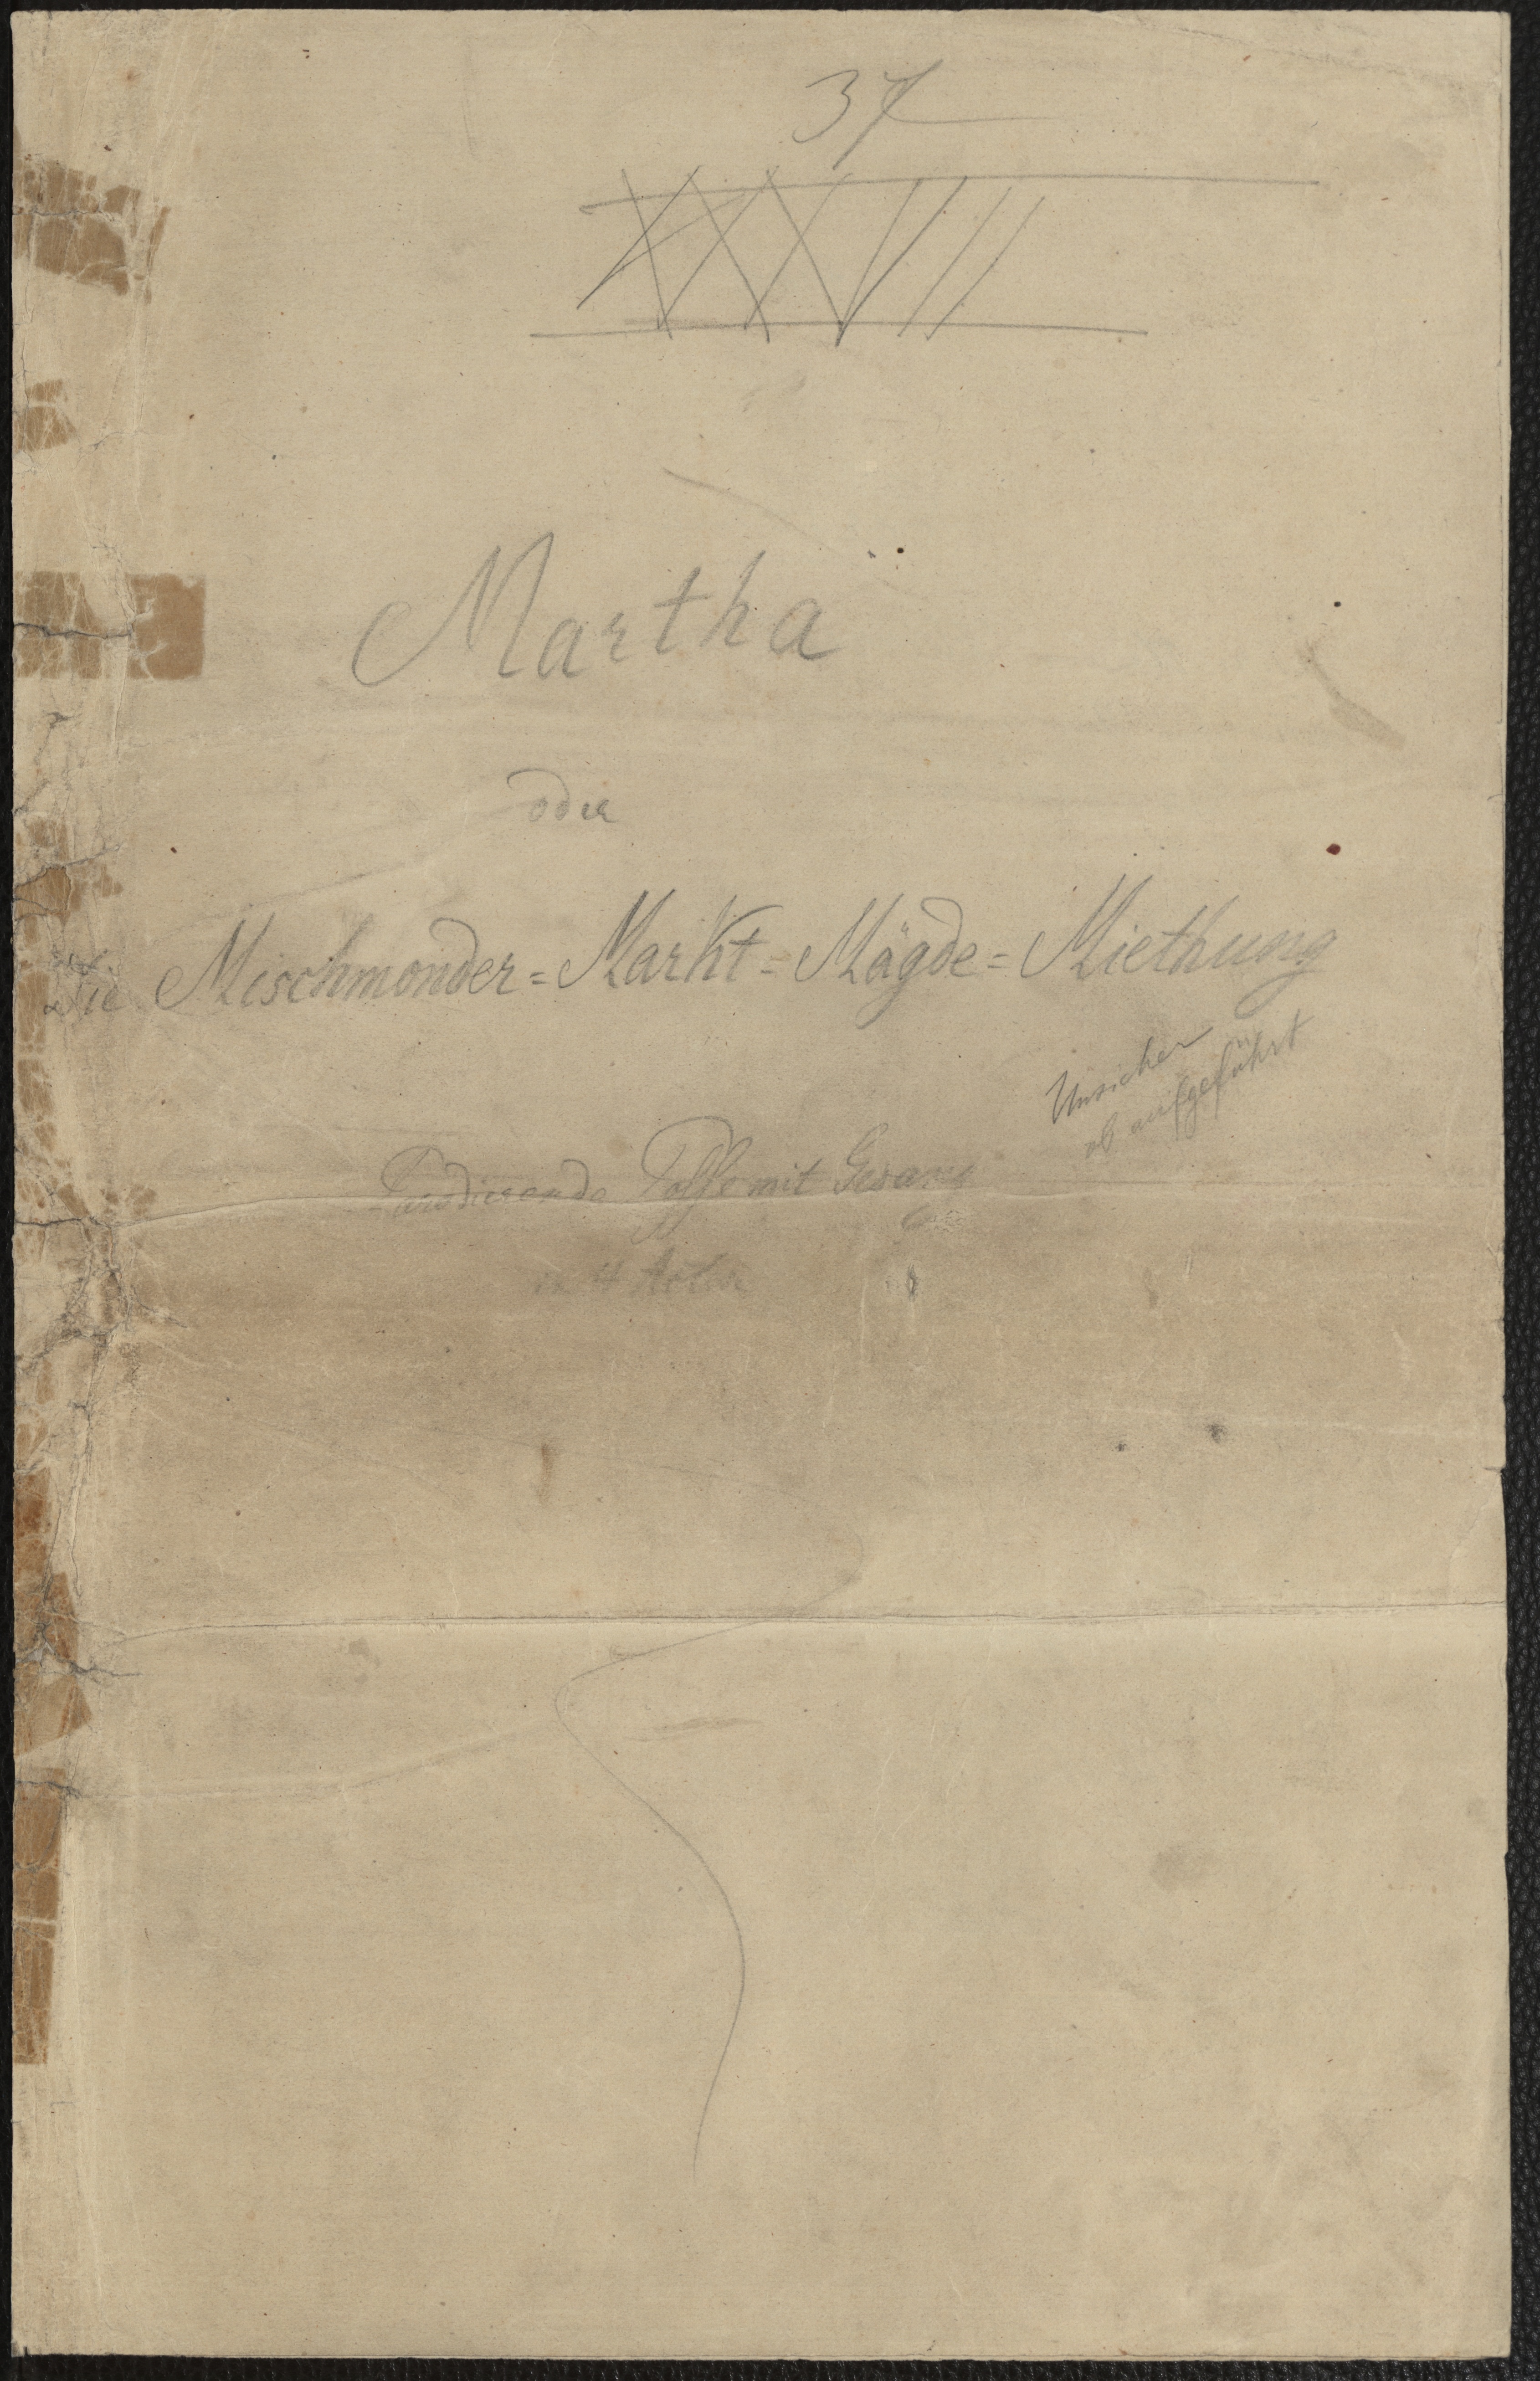 37
XXXVII
Martha
oder
Die Mischmonder=Markt=Mägde=Miethung
Unsicher
ob aufgeführt
Parodierende Posse mit Gesang
in 4 Acten